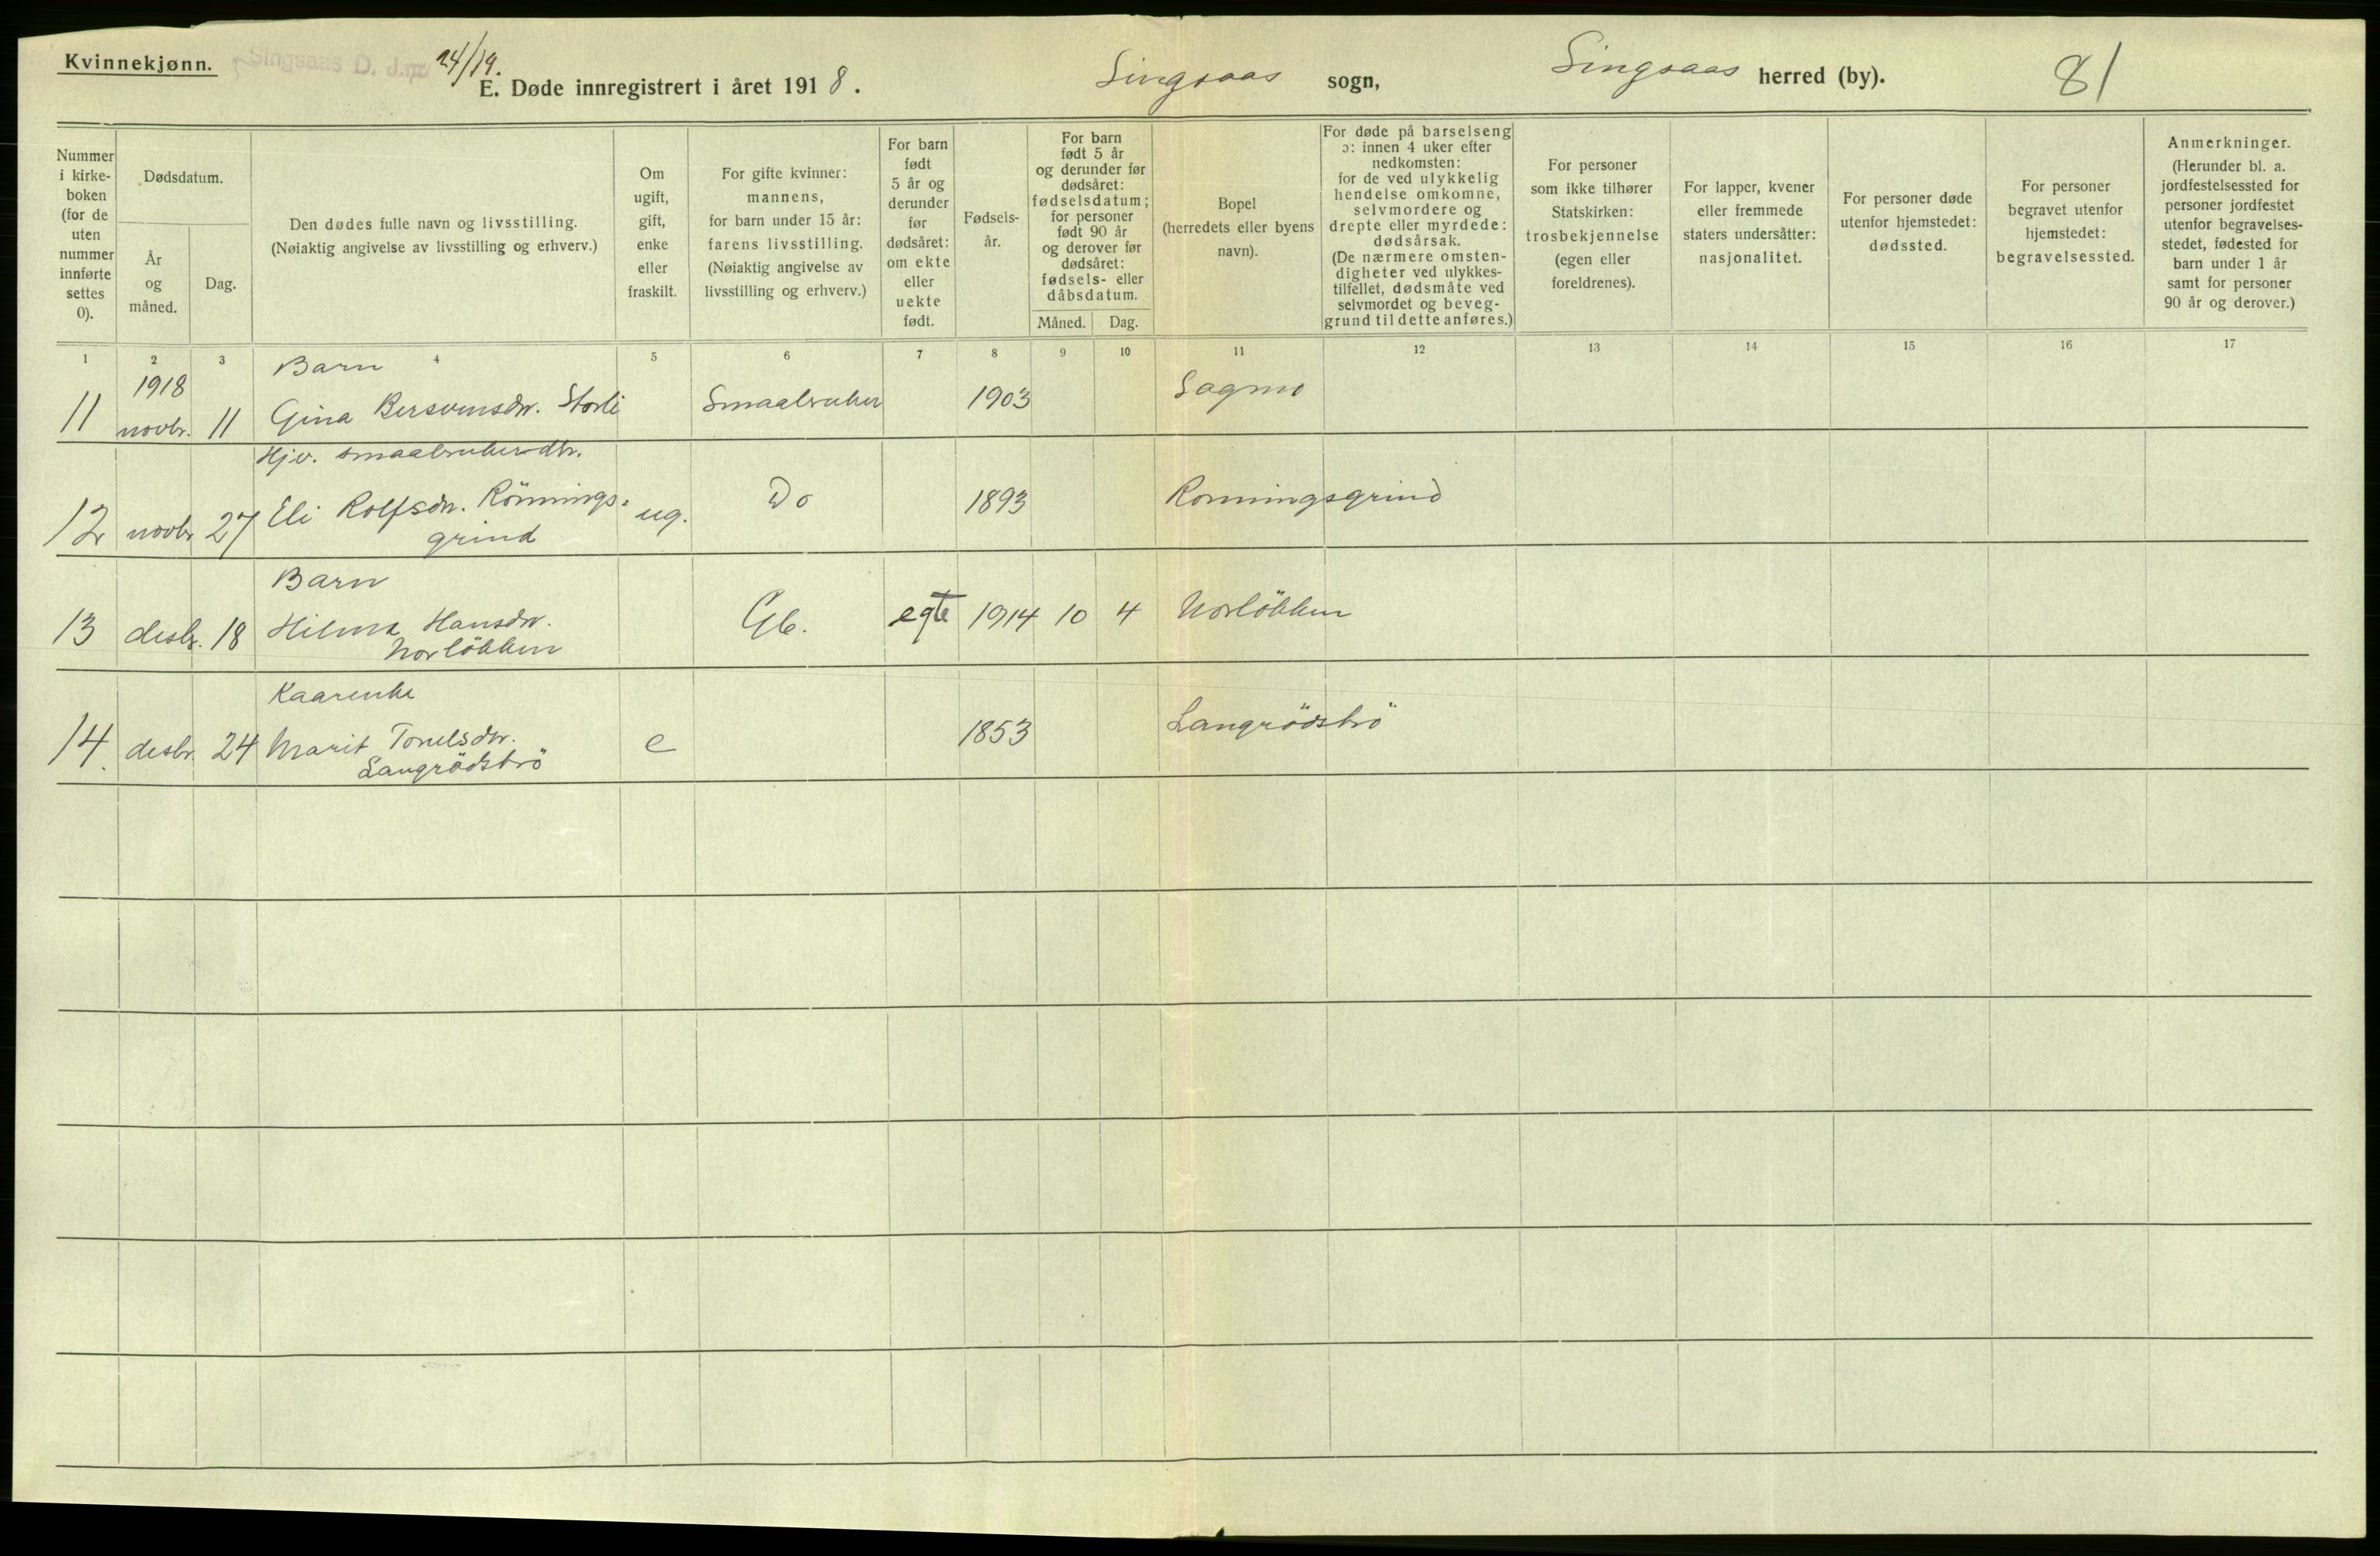 Kvinnekjønn.
Singsaas D. J.nr. 24/19.
E. Døde innregistrert i året 1918.
Singsaas sogn,
Singsaas herred (by).
81
Nummer
i kirke-
boken
(for de
uten
nummer
innførte
settes
0).
Dødsdatum.
År
og
måned.
Dag.
Den dødes fulle navn og livsstilling.
(Nøiaktig angivelse av livsstilling og erhverv.)
Om
ugift,
gift,
enke
eller
fraskilt.
For gifte kvinner:
mannens,
for barn under 15 år:
farens livsstilling.
(Nøiaktig angivelse av
livsstilling og erhverv.)
For barn
født
5 år og
derunder
før
dødsåret:
om ekte
eller
uekte
født.
Fødsels-
år.
For barn
født 5 år
og derunder før
dødsåret:
fødselsdatum;
for personer
født 90 år
og derover før
dødsåret:
fødsels- eller
dåbsdatum.
Måned. Dag.
Bopel
(herredets eller byens
navn).
For døde på barselseng
ɔ: innen 4 uker efter
nedkomsten:
for de ved ulykkelig
hendelse omkomne,
selvmordere og
drepte eller myrdede:
dødsårsak.
(De nærmere omsten-
digheter ved ulykkes-
tilfellet, dødsmåte ved
selvmordet og beveg-
grund til dette anføres.)
For personer
som ikke tilhører
Statskirken:
trosbekjennelse
(egen eller
foreldrenes).
For lapper, kvener
eller fremmede
staters undersåtter:
nasjonalitet.
For personer døde
utenfor hjemstedet:
dødssted.
For personer
begravet utenfor
hjemstedet:
begravelsessted.
Anmerkninger.
(Herunder bl. a.
jordfestelsessted for
personer jordfestet
utenfor begravelses-
stedet, fødested for
barn under 1 år
samt for personer
90 år og derover.)
1 2 3 4 5 6 7 8 9 10 11 12 13 14 15 16 17
1918 Barn
11 novbr. 11 Gina Bersvensdr. Storli Smaabruker 1903 Sagmo
Hjv. smaabrukerdtr.
12 novbr. 27 Eli Rolfsdr. Rönnings- ug. Do 1893 Ronningsgrind
grind
Barn
13 desbr. 18 Hilma Hansdr. Gb. egte 1914 10 4 Norlökken
Norlökken
Kaarenke
14. desbr. 24 Marit Tonelsdr. e 1853 Langrödsbrö
Langrödsbrö